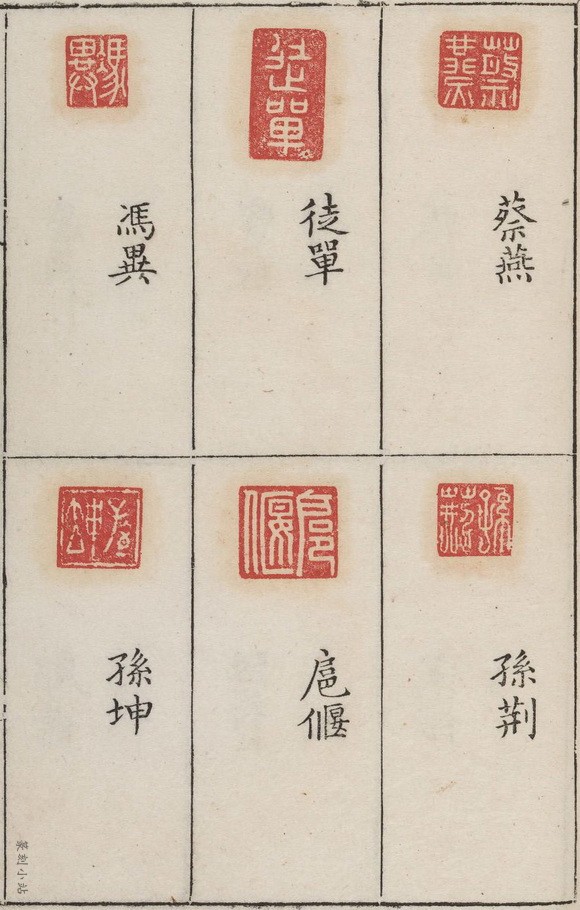 蔡燕
徒單
馮異
孫荆
扈偃
孫坤
篆刻小站